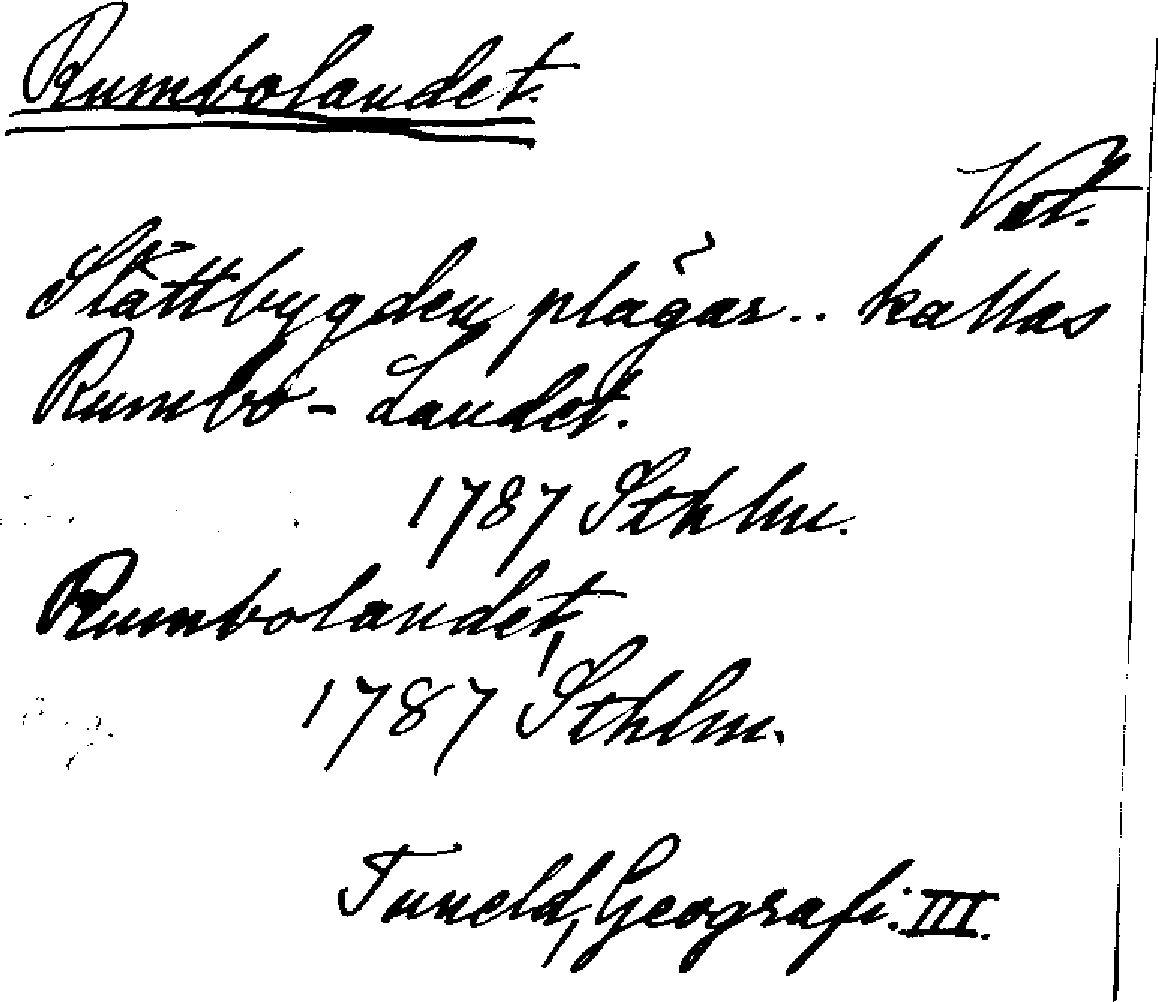 Rumbolandet.
Vat.
Slättbygden plägar.. kallas
Rumbo-Landet.
1787 Sthlm.
Rumbolandet,
1787 Sthlm.
Tuneld, Geografi. III.